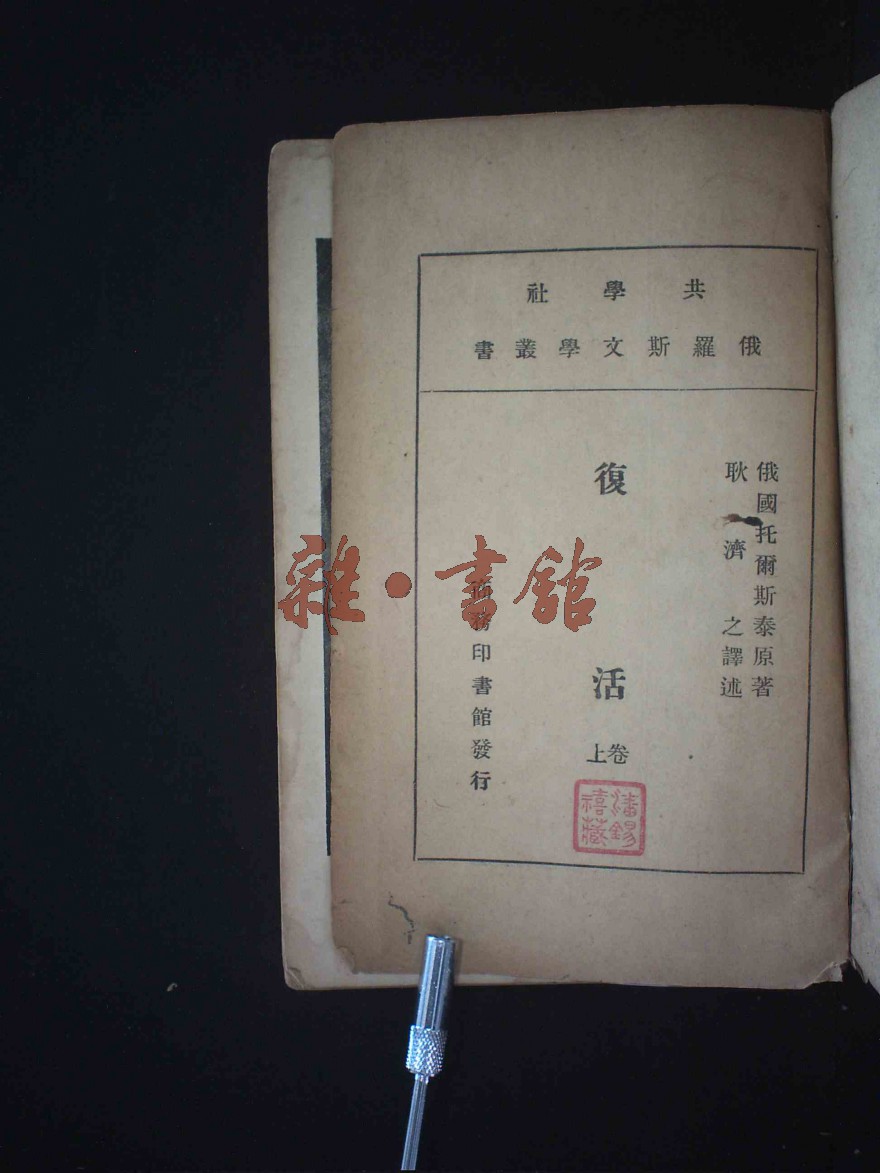 共學社
俄羅斯文學叢書
俄國托爾斯泰原著
耿濟之譯述
復活
卷上
商務印書館發行
雜·書館